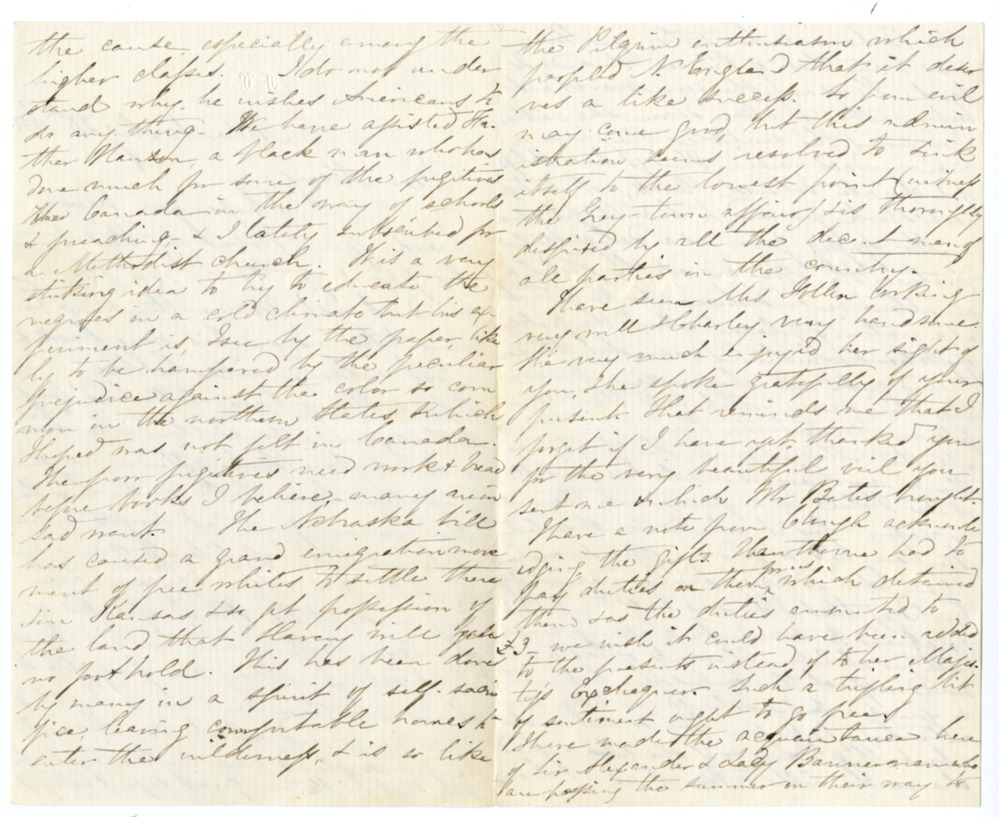 the cause, especially among the
higher classes. I do not under
stand why he wishes Americans to
do any thing. We have assisted Fa
ther Hanson, a black man who has
done much for some of the fugitives
in Canada in the way of schools
& preaching & I lately subscribed for
a Methodist church. It is a very
striking idea to try to educate the
negroes in a cold climate but his ex
periment is, I see by the paper, like
ly to be hampered by the peculiar
prejudice against the color so com
mon in the northern States, & which
I hoped was not felt in Canada.
The poor fugitives need work & bread
before books I believe, many are in
sad want. The Nebraska bill
has caused a grand emigration move
ment of free whites to settle there
& in Kansas & so get possession of
the land that Slavery will gain
no foothold. This has been done
by many in a spirit of self-sacri
fice, leaving comfortable homes to
enter the wilderness, & is so like
the Pilgrim enthusiasm which
peopled N. England that it deser
ves a like success. So from evil
may come good, but this admin
istration seems resolved to sink
itself to the lowest point (witness
the Grey-town affair) & is thoroughly
despised by all the decent men of
all parties in the country.
I have seen Mrs Follen looking
very well & Charley very handsome.
She very much enjoyed her sight of
you. She spoke gratefully of your
present. That reminds me that I
forget if I have yet thanked you
for the very beautiful veil you
sent me which Mr Bates brought.
I have a note from Clough acknowl
edging the gifts. Hawthorne had to
pay duties on them which detained
them & as the duties amounted to
£3 - we wish it could have been added
to the presents instead of to her Majes-
ty's Exchequer. Such a trifling bit
of sentiment ought to go free.
I have made the acquaintance here
of Sir Alexander & Lady Bannerman who
are passing the summer on their way to